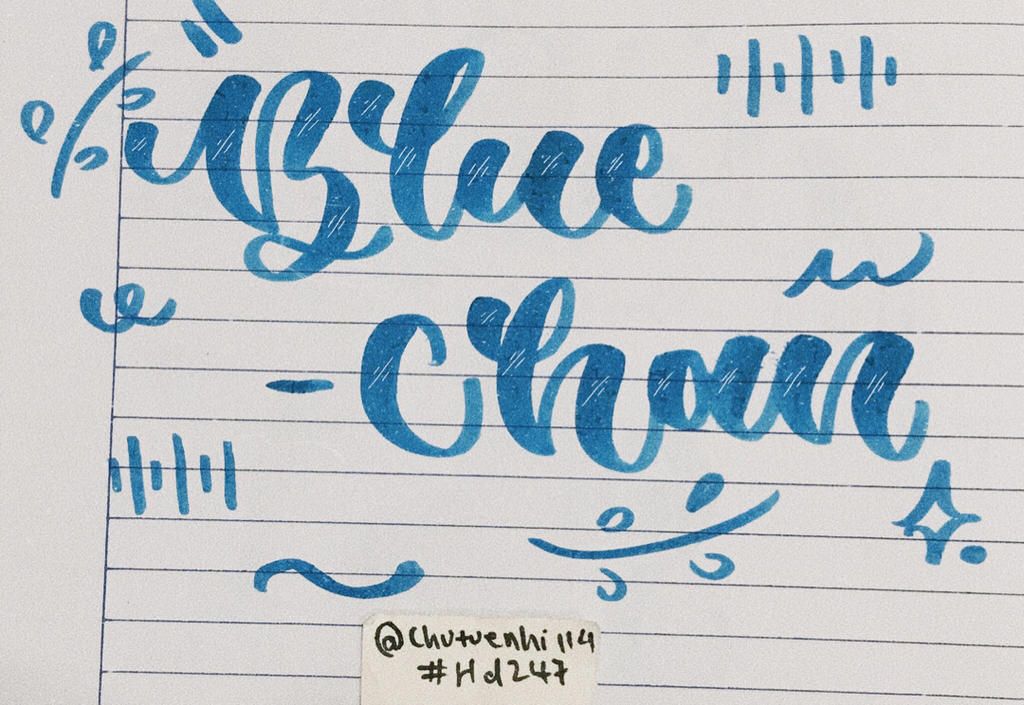 Blue
-Chan
@chutuenhi114
#Hd247